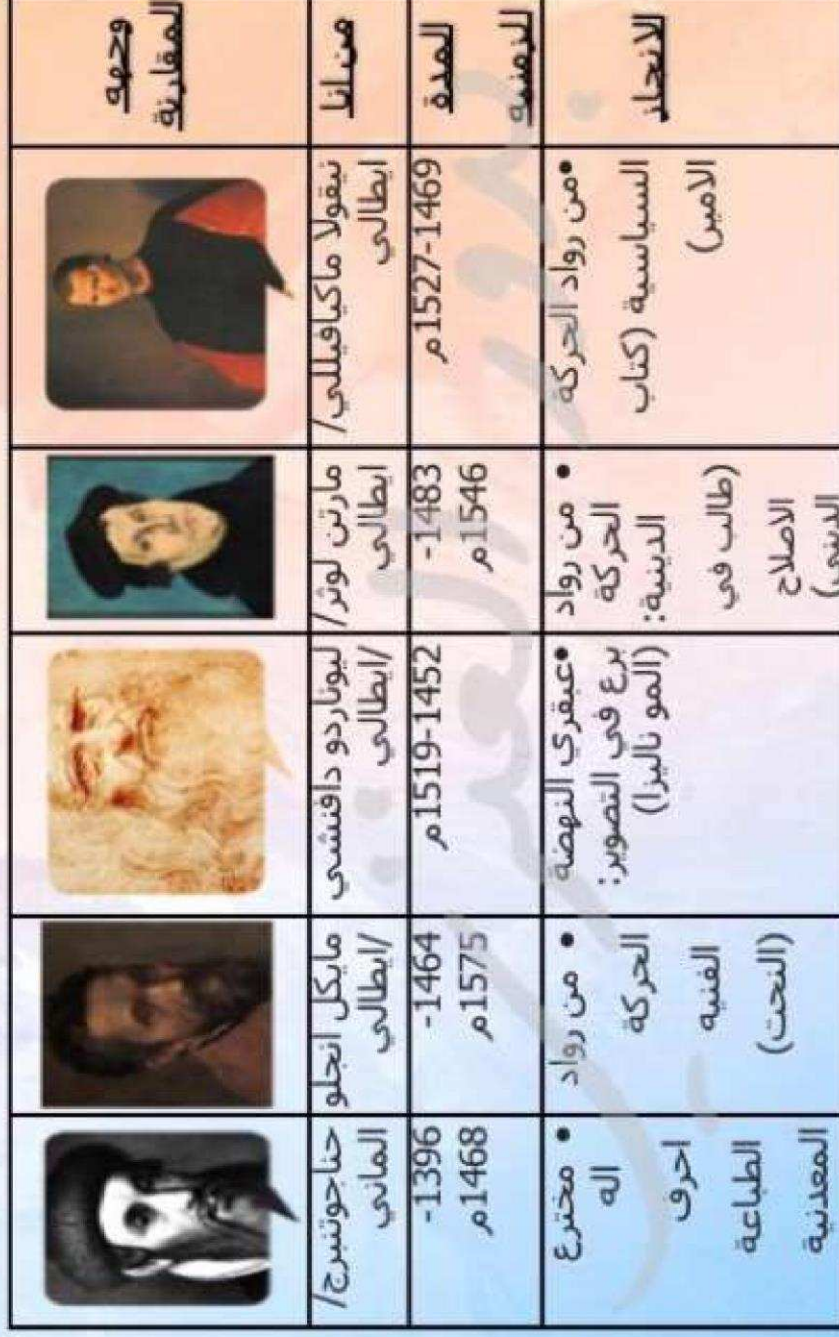 وجهه
المقارنة
نيقولا ماكيافيللي/
ايطالي
مارتن لوثر/
ايطالي
ليوناردو دافنشي
/ايطالي
مايكل انجلو
/ايطالي
حناجوتنبرج/
الماني
من انا
المدة
الزمنية
1469-1527م
1483-
1546م
1452-1519م
1464-
1575م
1396-
1468م
الانجاز
•من رواد الحركة
السياسية (كتاب
الامير)
• من رواد
الحركة
الدينية:
(طالب في
الاصلاح
الديني)
•عبقري النهضة
برع في التصوير:
(المو ناليزا)
• من رواد
الحركة
الفنيه
(النحت)
• مخترع
اله
احرف
الطباعة
المعدنية